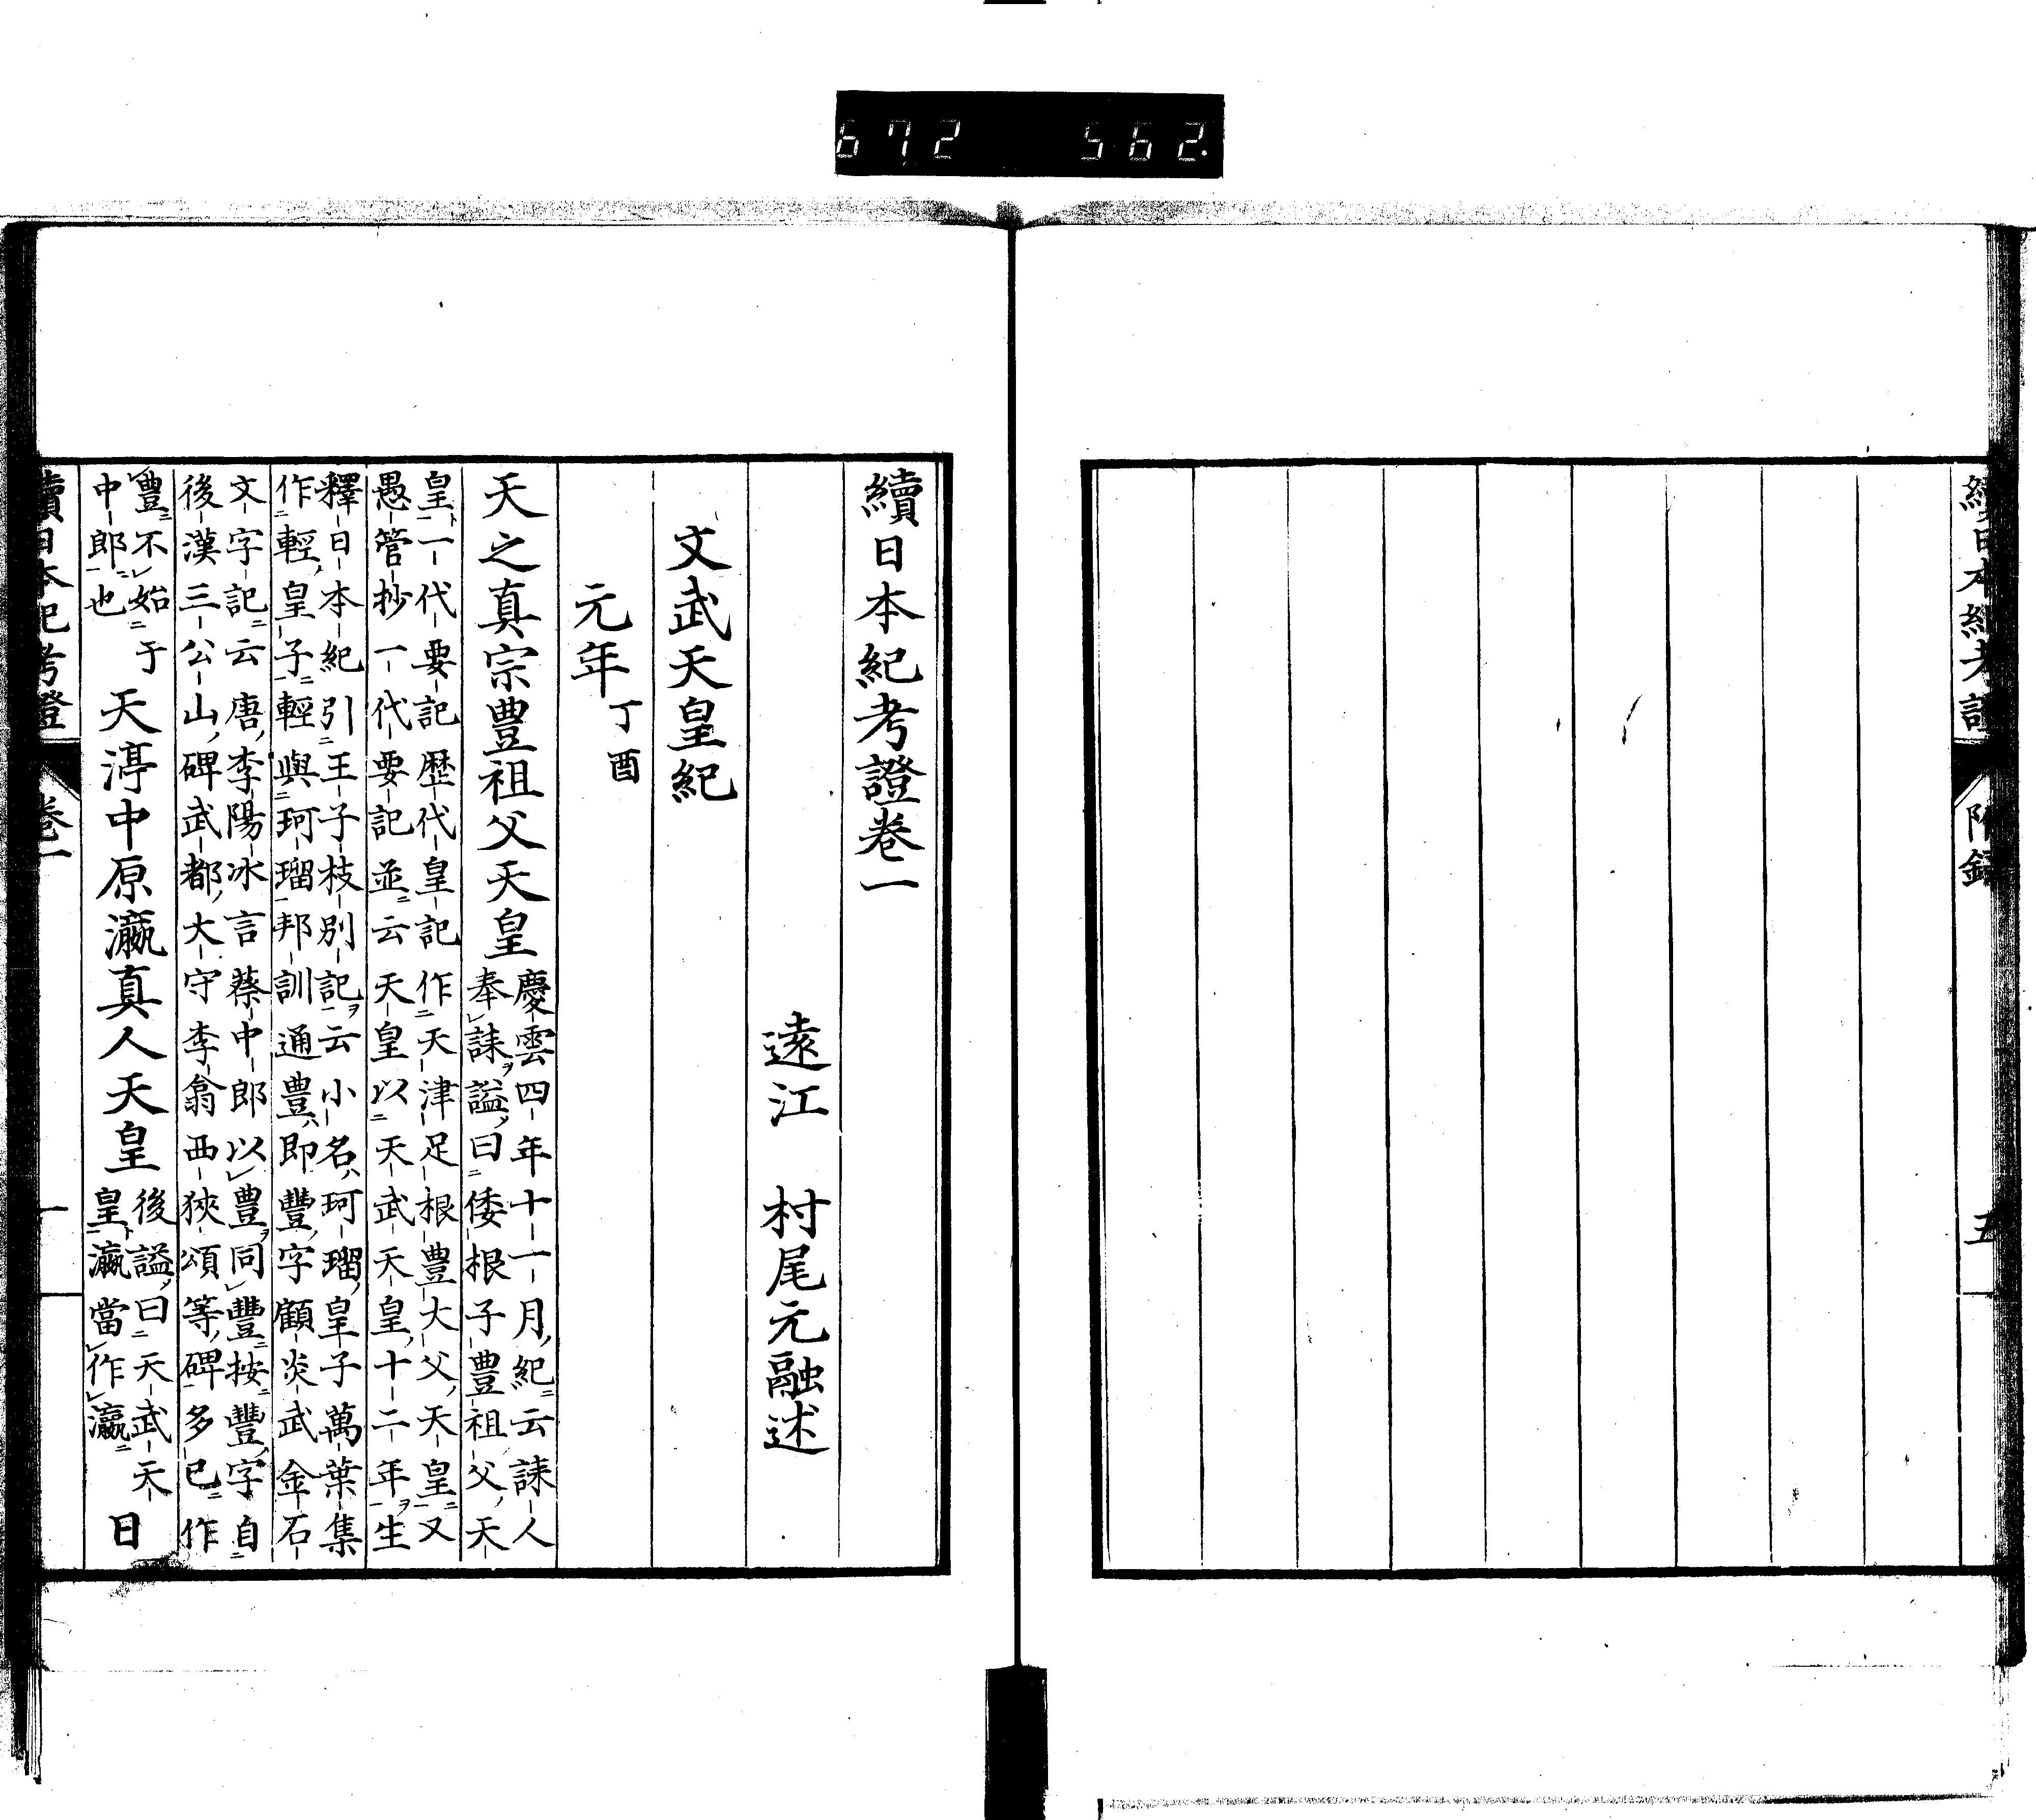 672 562.
續日本紀考證
附録
五
續日本紀考證卷一
遠江 村尾元融述
文武天皇紀
元年丁酉
天之真宗豊祖父天皇
慶雲四年十一月紀云誄人
奉誄諡曰倭根子豊祖父天
皇一代要記歴代皇記作天津足根豊大父天皇又
愚管抄一代要記並云天皇以天武天皇十二年生
釋日本紀引王子枝別記云小名珂瑠皇子萬葉集
作輕皇子輕與珂瑠邦訓通豊即豐字顧炎武金石
文字記云唐李陽冰言蔡中郎以豊同豐按豐字自
後漢三公山碑武都大守李翕西狹頌等碑多已作
豊不始于
中郎也
天渟中原瀛真人天皇
後諡曰天武天
皇瀛當作瀛
日
續日本紀考證
卷一
一